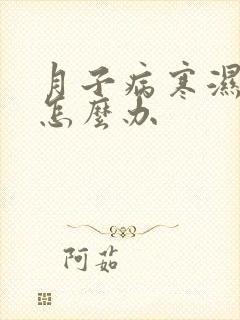 月子病寒濕
怎麼办
阿茹